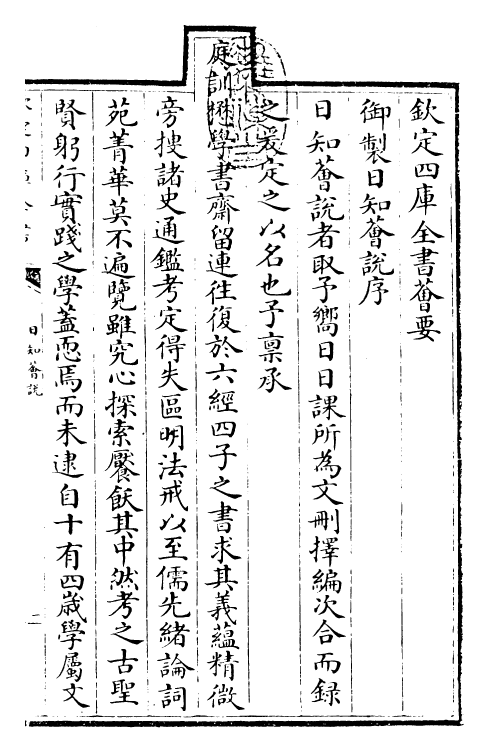 欽定四庫全書薈要
御製日知薈說序
日知薈說者取予嚮日日課所為文刪擇編次合而録
之爰定之以名也予禀承
庭訓懋學書齋留連往復於六經四子之書求其義蘊精微
旁搜諸史通鑑考定得失區明法戒以至儒先緒論詞
苑菁華莫不遍覽雖究心探索饜飫其中然考之古聖
賢躬行實踐之學蓋恧焉而未逮自十有四歲學屬文
日知薈說